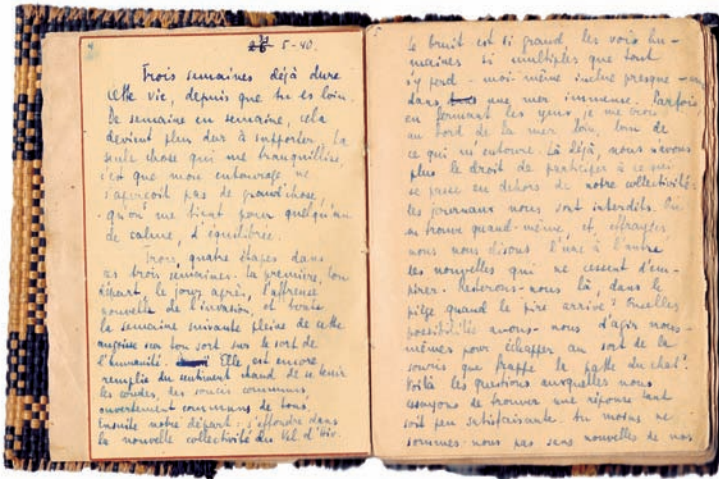 5-40.
Trois semaines déjà dure
cette vie, depuis que tu es loin.
De semaine en semaine, cela
devient plus dur à supporter. La
seule chose qui me tranquillise,
c'est que mon entourage ne
s'aperçoit pas de grand'chose,
qu'on me tient pour quelqu'un
de calme, d'équilibrée.
Trois, quatre étapes dans
ces trois semaines. La première, ton
départ, le jour après, l'affreuse
nouvelle de l'invasion, et toute
la semaine suivante pleine de cette
angoisse sur ton sort sur le sort de
l'humanité. Elle est encore
remplie du sentiment chaud de se tenir
les coudes, des soucis communs,
ouvertement communs de tous.
Ensuite notre départ : s'effondre dans
la nouvelle collectivité du Vel. d'Hiv.
Le bruit est si grand, les voix hu-
maines si multiples que tout
s'y perd - moi-même incluse presque -
dans une mer immense. Parfois,
en fermant les yeux, je me crois
au bord de la mer loin, loin de
ce qui m'entoure. Là déjà, nous n'avons
plus le droit de participer à ce qui
se passe en dehors de notre collectivité:
les journaux nous sont interdits. On
en trouve quand-même, et, effrayées,
nous nous disons l'une à l'autre
les nouvelles qui ne cessent d'em-
pirer. Resterons-nous là, dans le
piège quand le pire arrive? Quelles
possibilités avons-nous d'agir nous-
mêmes pour échapper au sort de la
souris que frappe la patte du chat?
Voilà les questions auxquelles nous
essayons de trouver une réponse tant
soit peu satisfaisante. Au moins ne
sommes-nous pas sans nouvelles de nos